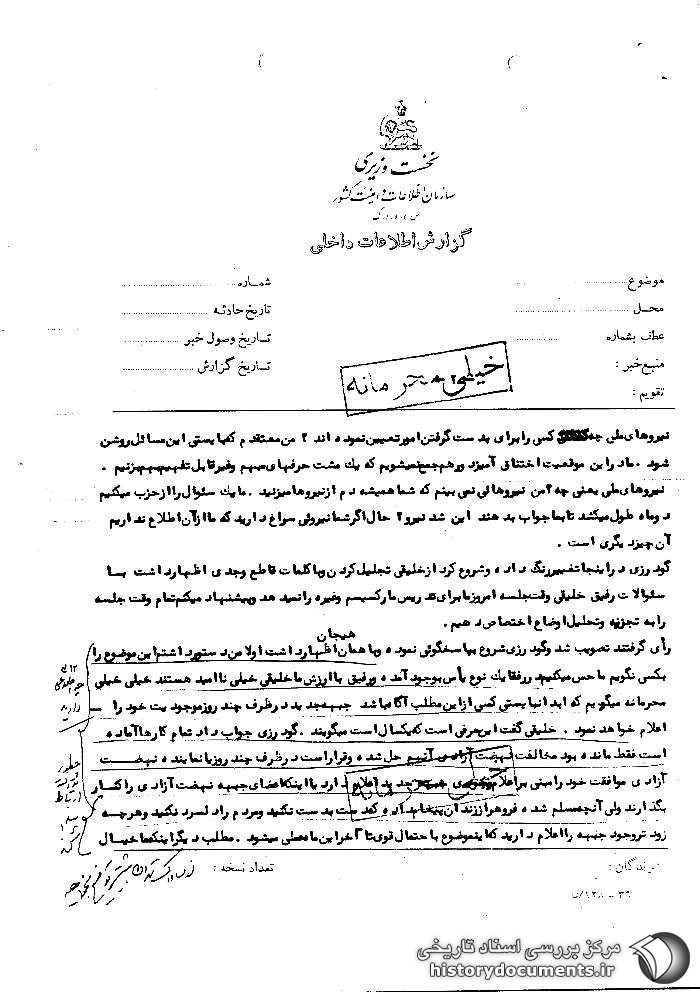 نخست وزیری
سازمان اطلاعات و امنیت کشور
س.ا.و.ا.ک
گزارش اطلاعات داخلی
موضوع
شماره
محل
تاریخ حادثه
عطف بشماره
تاریخ وصول خبر
منبع خبر :
تاریخ گزارش
تقویم :
خیلی محرمانه
نیروهای ملی چه کسی را برای بدست گرفتن امور تعیین نموده اند ؟ من معتقدم که بایستی این مسائل روشن
شود . مادر این موقعیت اختناق آمیز د ورهم جمع نمیشویم که یك مشت حرفهای مبهم وغیرقابل تفهیم بهم بزنیم .
نیروهای ملی یعنی چه ؟ من نیروهائی نمی بینم که شما همیشه دم از نیروها میزنید . ما یك سئوال را از حزب میکنیم
د وماه طول میکشد تا بما جواب بدهند این شد نیرو ؟ حال اگر شما نیروئی سراغ دارید که ما از آن اطلاع نداریم
آن چیز دیگری است .
گود رزی در اینجا تغییر رنگ داده وشروع کرد از خلیقی تجلیل کردن وبا کلمات قاطع وجدی اظهار داشت بسا
سئوالات رفیق خلیقی وقت جلسه امروز ما برای تدریس مارکسیسم وغیره را نمیدهد وپیشنهاد میکنم تمام وقت جلسه
را به تجزیه وتحلیل اوضاع اختصاص دهیم .
رأی گرفتند تصویب شد وگود رزی شروع بپاسخگوئی نمود و با همان هیجان اظهار داشت اولا من دستور داشتم این موضوع را
بکسی نگویم ما حس میکنیم در رفقا یك نوع یأس بوجود آمده ورفیق با ارزش ما خلیقی خیلی نا امید هستند خیلی خیلی
محرمانه میگویم که ابدا نبایستی کسی از این مطلب آگاه باشد جبهه جدید در ظرف چند روز موجودیت خود را
اعلام خواهد نمود . خلیقی گفت این حرفی است که یکسال است میگویند . گود رزی جواب داد تمام کارها آماده
است فقط مانده بود مخالفت نهضت آزادی آنهم حل شده وقرار است در ظرف چند روز با نماینده نهضت
آزادی موافقت خود را مبنی بر اعلام جبهه جدید اعلام دارد با اینکه اعضای جبهه نهضت آزادی را کنار
بگذارند ولی آنچه مسلم شده فروهر از زندان پیغام داده که دست بدست نکنید ومردم را دلسرد نکنید وهرچه
زود تر وجود جبهه را اعلام دارید که این موضوع با احتمال قوی تا آخر این ماه عملی میشود . مطلب دیگر اینکه ما خیال
گیرندگان :
تعداد نسخه :
۳۶ - ۱۲۸
مرکز بررسی اسناد تاریخی
historydocuments.ir